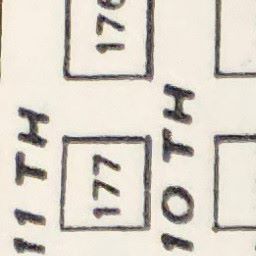 11TH
177
10TH